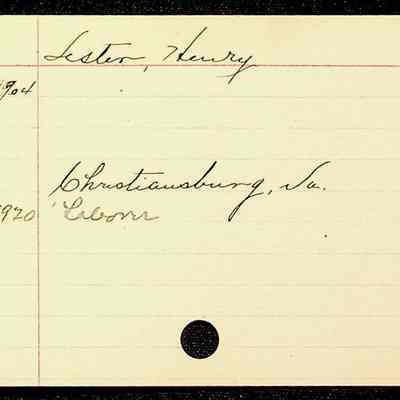 Lester, Henry
1904
Christiansburg, Va.
1920 Laborer